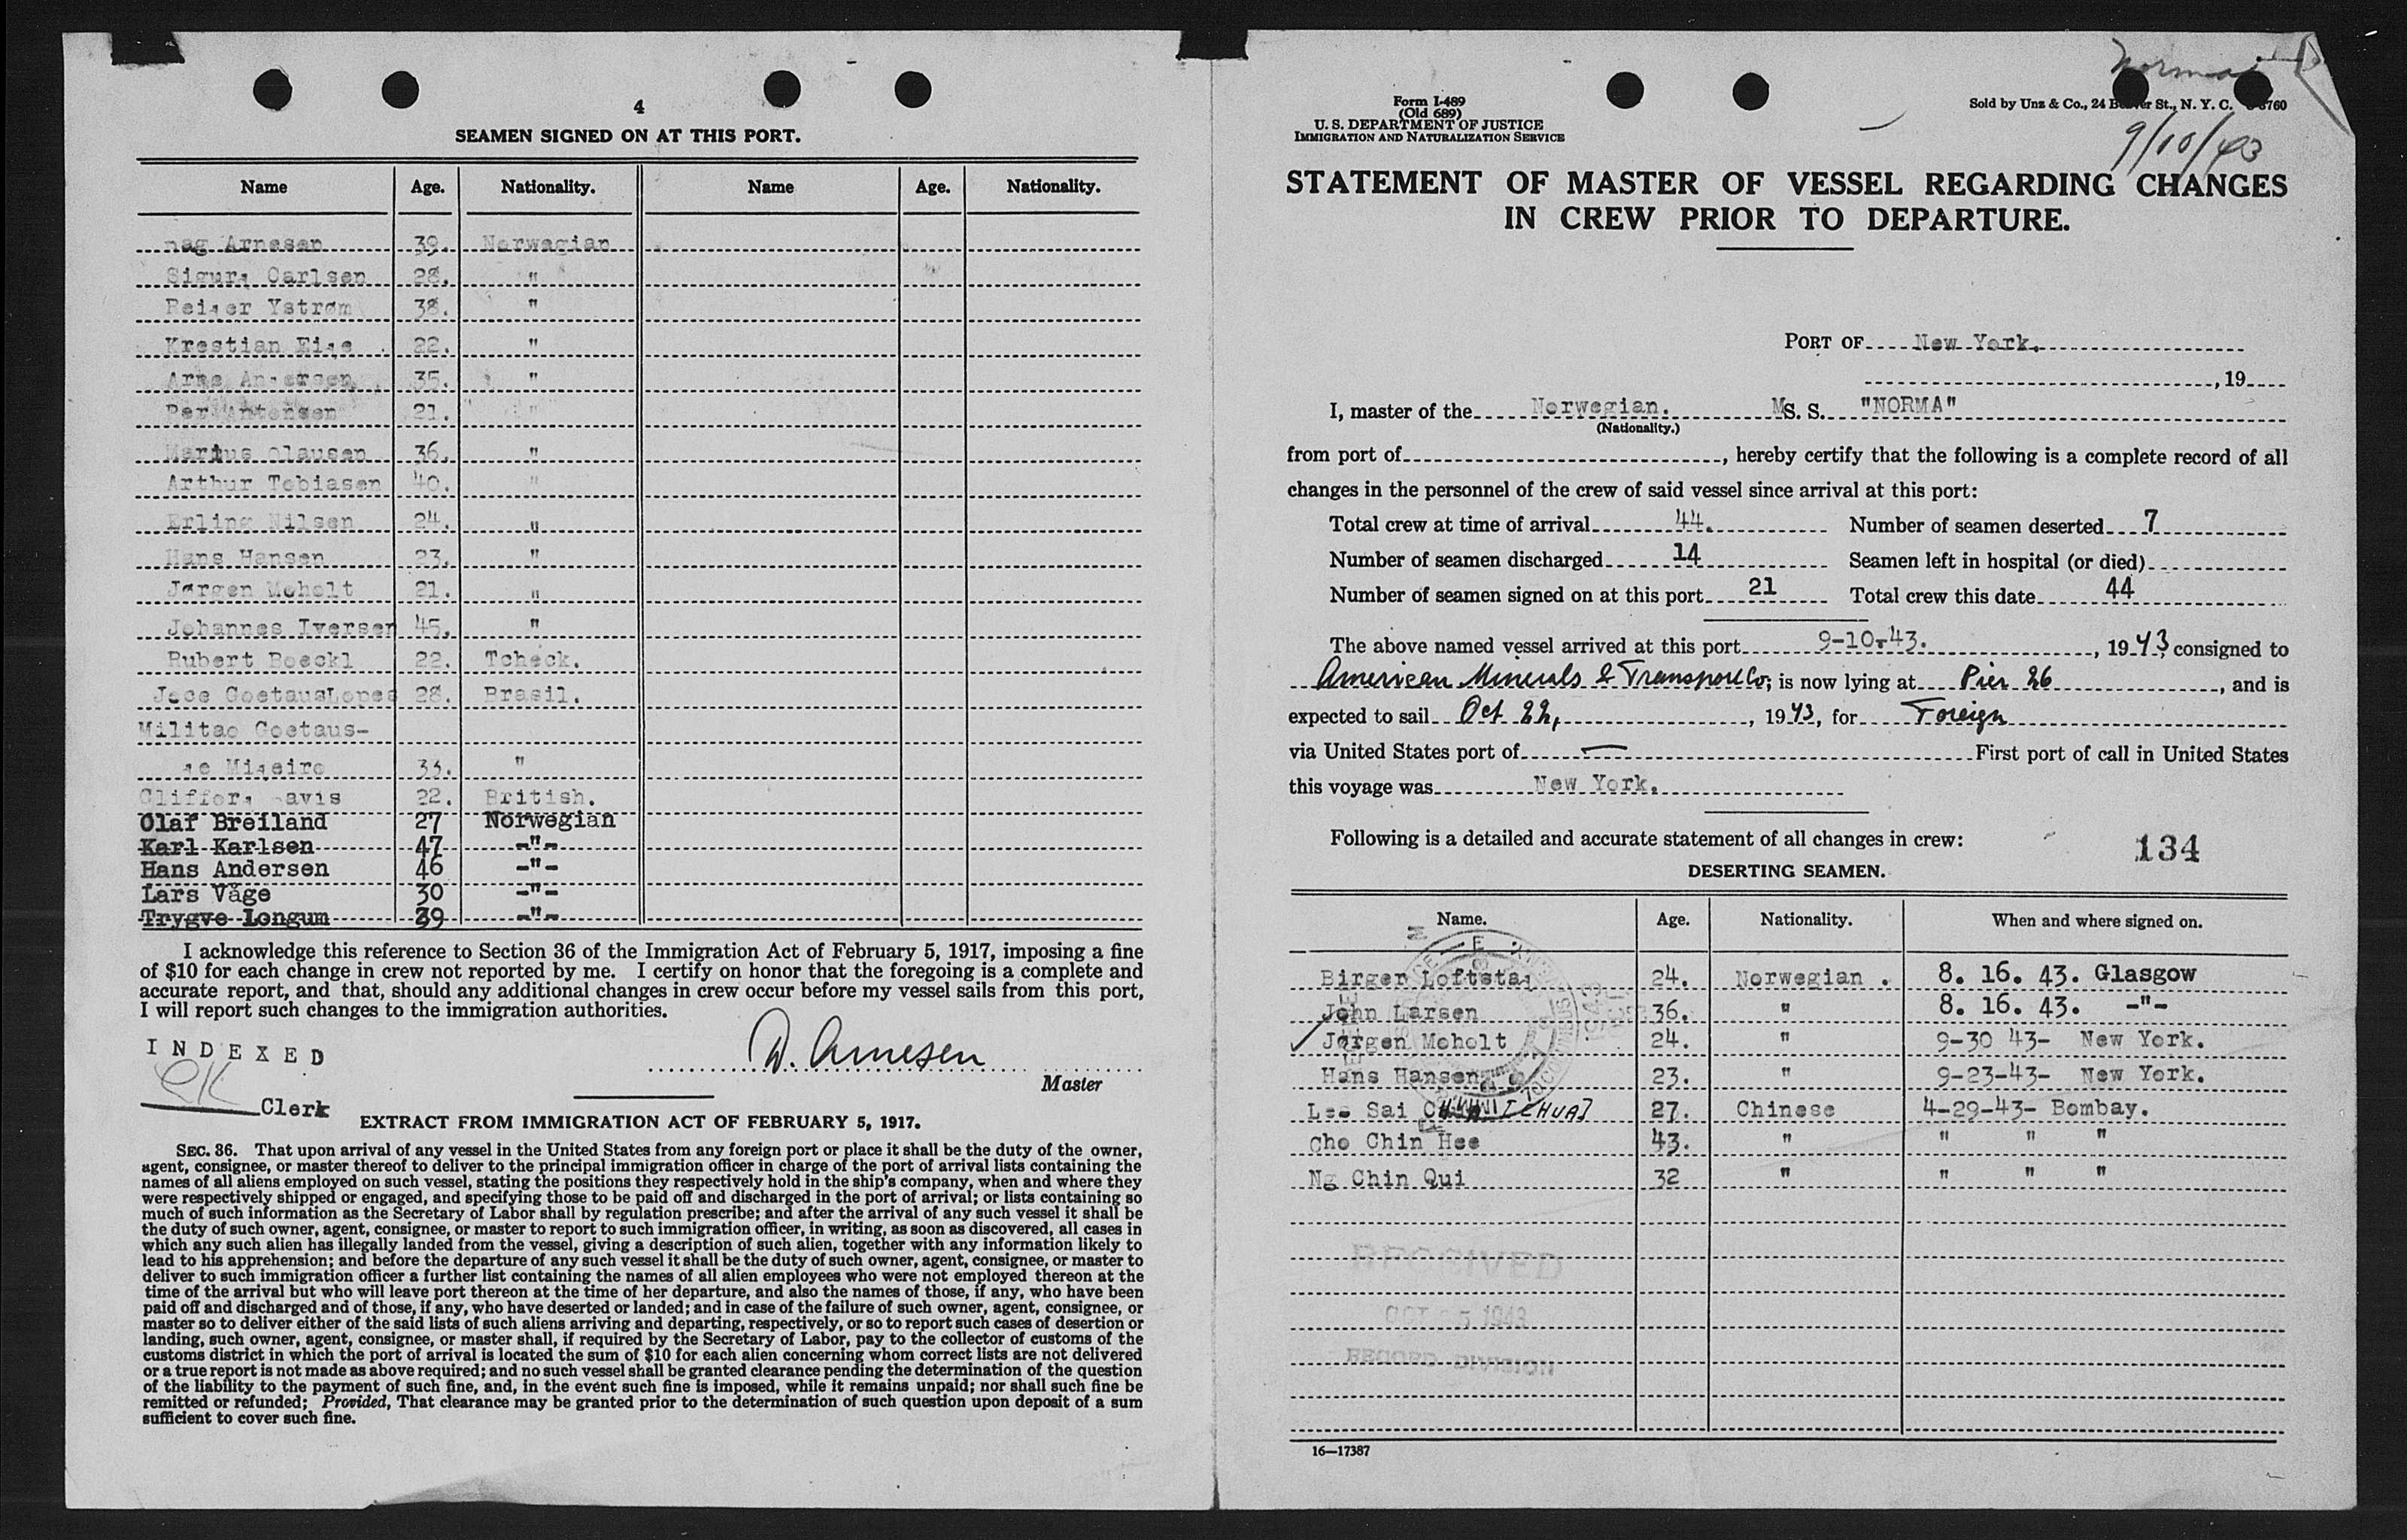 4
SEAMEN SIGNED ON AT THIS PORT.
Name Age. Nationality. Name Age. Nationality.
Arnesen 39. Norwegian
Carlsen 28. "
Reiser Ystrøm 38. "
Krestian 22. "
Arne 35. "
Per 21. "
Marius Olausen 36. "
Arthur Tobiasen 40. "
Erling Nilsen 24. "
Hans Hansen 23. "
Jørgen Moholt 21. "
Johannes Iversen 45. "
Rubert Boeckl 22. Tcheck.
Joce GoetausLopes 28. Brasil.
Militao Goetaus-
33. "
22. British.
Olaf Breiland 27 Norwegian
Karl Karlsen 47 -"-
Hans Andersen 46 -"-
Lars Våge 30 -"-
Trygve Longum 39 -"-
I acknowledge this reference to Section 36 of the Immigration Act of February 5, 1917, imposing a fine
of $10 for each change in crew not reported by me. I certify on honor that the foregoing is a complete and
accurate report, and that, should any additional changes in crew occur before my vessel sails from this port,
I will report such changes to the immigration authorities.
INDEXED
D. Arnesen
Master
Clerk
EXTRACT FROM IMMIGRATION ACT OF FEBRUARY 5, 1917.
SEC. 36. That upon arrival of any vessel in the United States from any foreign port or place it shall be the duty of the owner,
agent, consignee, or master thereof to deliver to the principal immigration officer in charge of the port of arrival lists containing the
names of all aliens employed on such vessel, stating the positions they respectively hold in the ship's company, when and where they
were respectively shipped or engaged, and specifying those to be paid off and discharged in the port of arrival; or lists containing so
much of such information as the Secretary of Labor shall by regulation prescribe; and after the arrival of any such vessel it shall be
the duty of such owner, agent, consignee, or master to report to such immigration officer, in writing, as soon as discovered, all cases in
which any such alien has illegally landed from the vessel, giving a description of such alien, together with any information likely to
lead to his apprehension; and before the departure of any such vessel it shall be the duty of such owner, agent, consignee, or master to
deliver to such immigration officer a further list containing the names of all alien employees who were not employed thereon at the
time of the arrival but who will leave port thereon at the time of her departure, and also the names of those, if any, who have been
paid off and discharged and of those, if any, who have deserted or landed; and in case of the failure of such owner, agent, consignee, or
master so to deliver either of the said lists of such aliens arriving and departing, respectively, or so to report such cases of desertion or
landing, such owner, agent, consignee, or master shall, if required by the Secretary of Labor, pay to the collector of customs of the
customs district in which the port of arrival is located the sum of $10 for each alien concerning whom correct lists are not delivered
or a true report is not made as above required; and no such vessel shall be granted clearance pending the determination of the question
of the liability to the payment of such fine, and, in the event such fine is imposed, while it remains unpaid; nor shall such fine be
remitted or refunded; Provided, That clearance may be granted prior to the determination of such question upon deposit of a sum
sufficient to cover such fine.
Norma
Form I-489
(Old 689)
U. S. DEPARTMENT OF JUSTICE
IMMIGRATION AND NATURALIZATION SERVICE
Sold by Unz & Co., 24 St., N. Y. C.
9/10/43
STATEMENT OF MASTER OF VESSEL REGARDING CHANGES
IN CREW PRIOR TO DEPARTURE.
PORT OF New York.
, 19
I, master of the Norwegian. MS. S. "NORMA"
(Nationality.)
from port of , hereby certify that the following is a complete record of all
changes in the personnel of the crew of said vessel since arrival at this port:
Total crew at time of arrival 44. Number of seamen deserted 7
Number of seamen discharged 14 Seamen left in hospital (or died)
Number of seamen signed on at this port 21 Total crew this date 44
The above named vessel arrived at this port 9-10-43. , 1943, consigned to
American Minerals & Transport Co, is now lying at Pier 26 , and is
expected to sail Oct 22, , 1943, for Foreign
via United States port of — First port of call in United States
this voyage was New York.
Following is a detailed and accurate statement of all changes in crew:
134
DESERTING SEAMEN.
Name. Age. Nationality. When and where signed on.
Birger Loftstad 24. Norwegian . 8. 16. 43. Glasgow
John Larsen 36. " 8. 16. 43. -"-
Jørgen Moholt 24. " 9-30 43- New York.
Hans Hansen 23. " 9-23-43- New York.
Lee Sai [CHUA] 27. Chinese 4-29-43- Bombay.
Cho Chin Hee 43. " " " "
Ng Chin Qui 32 " " " "
RECEIVED
OCT 1943
RECORD DIVISION
16—17387